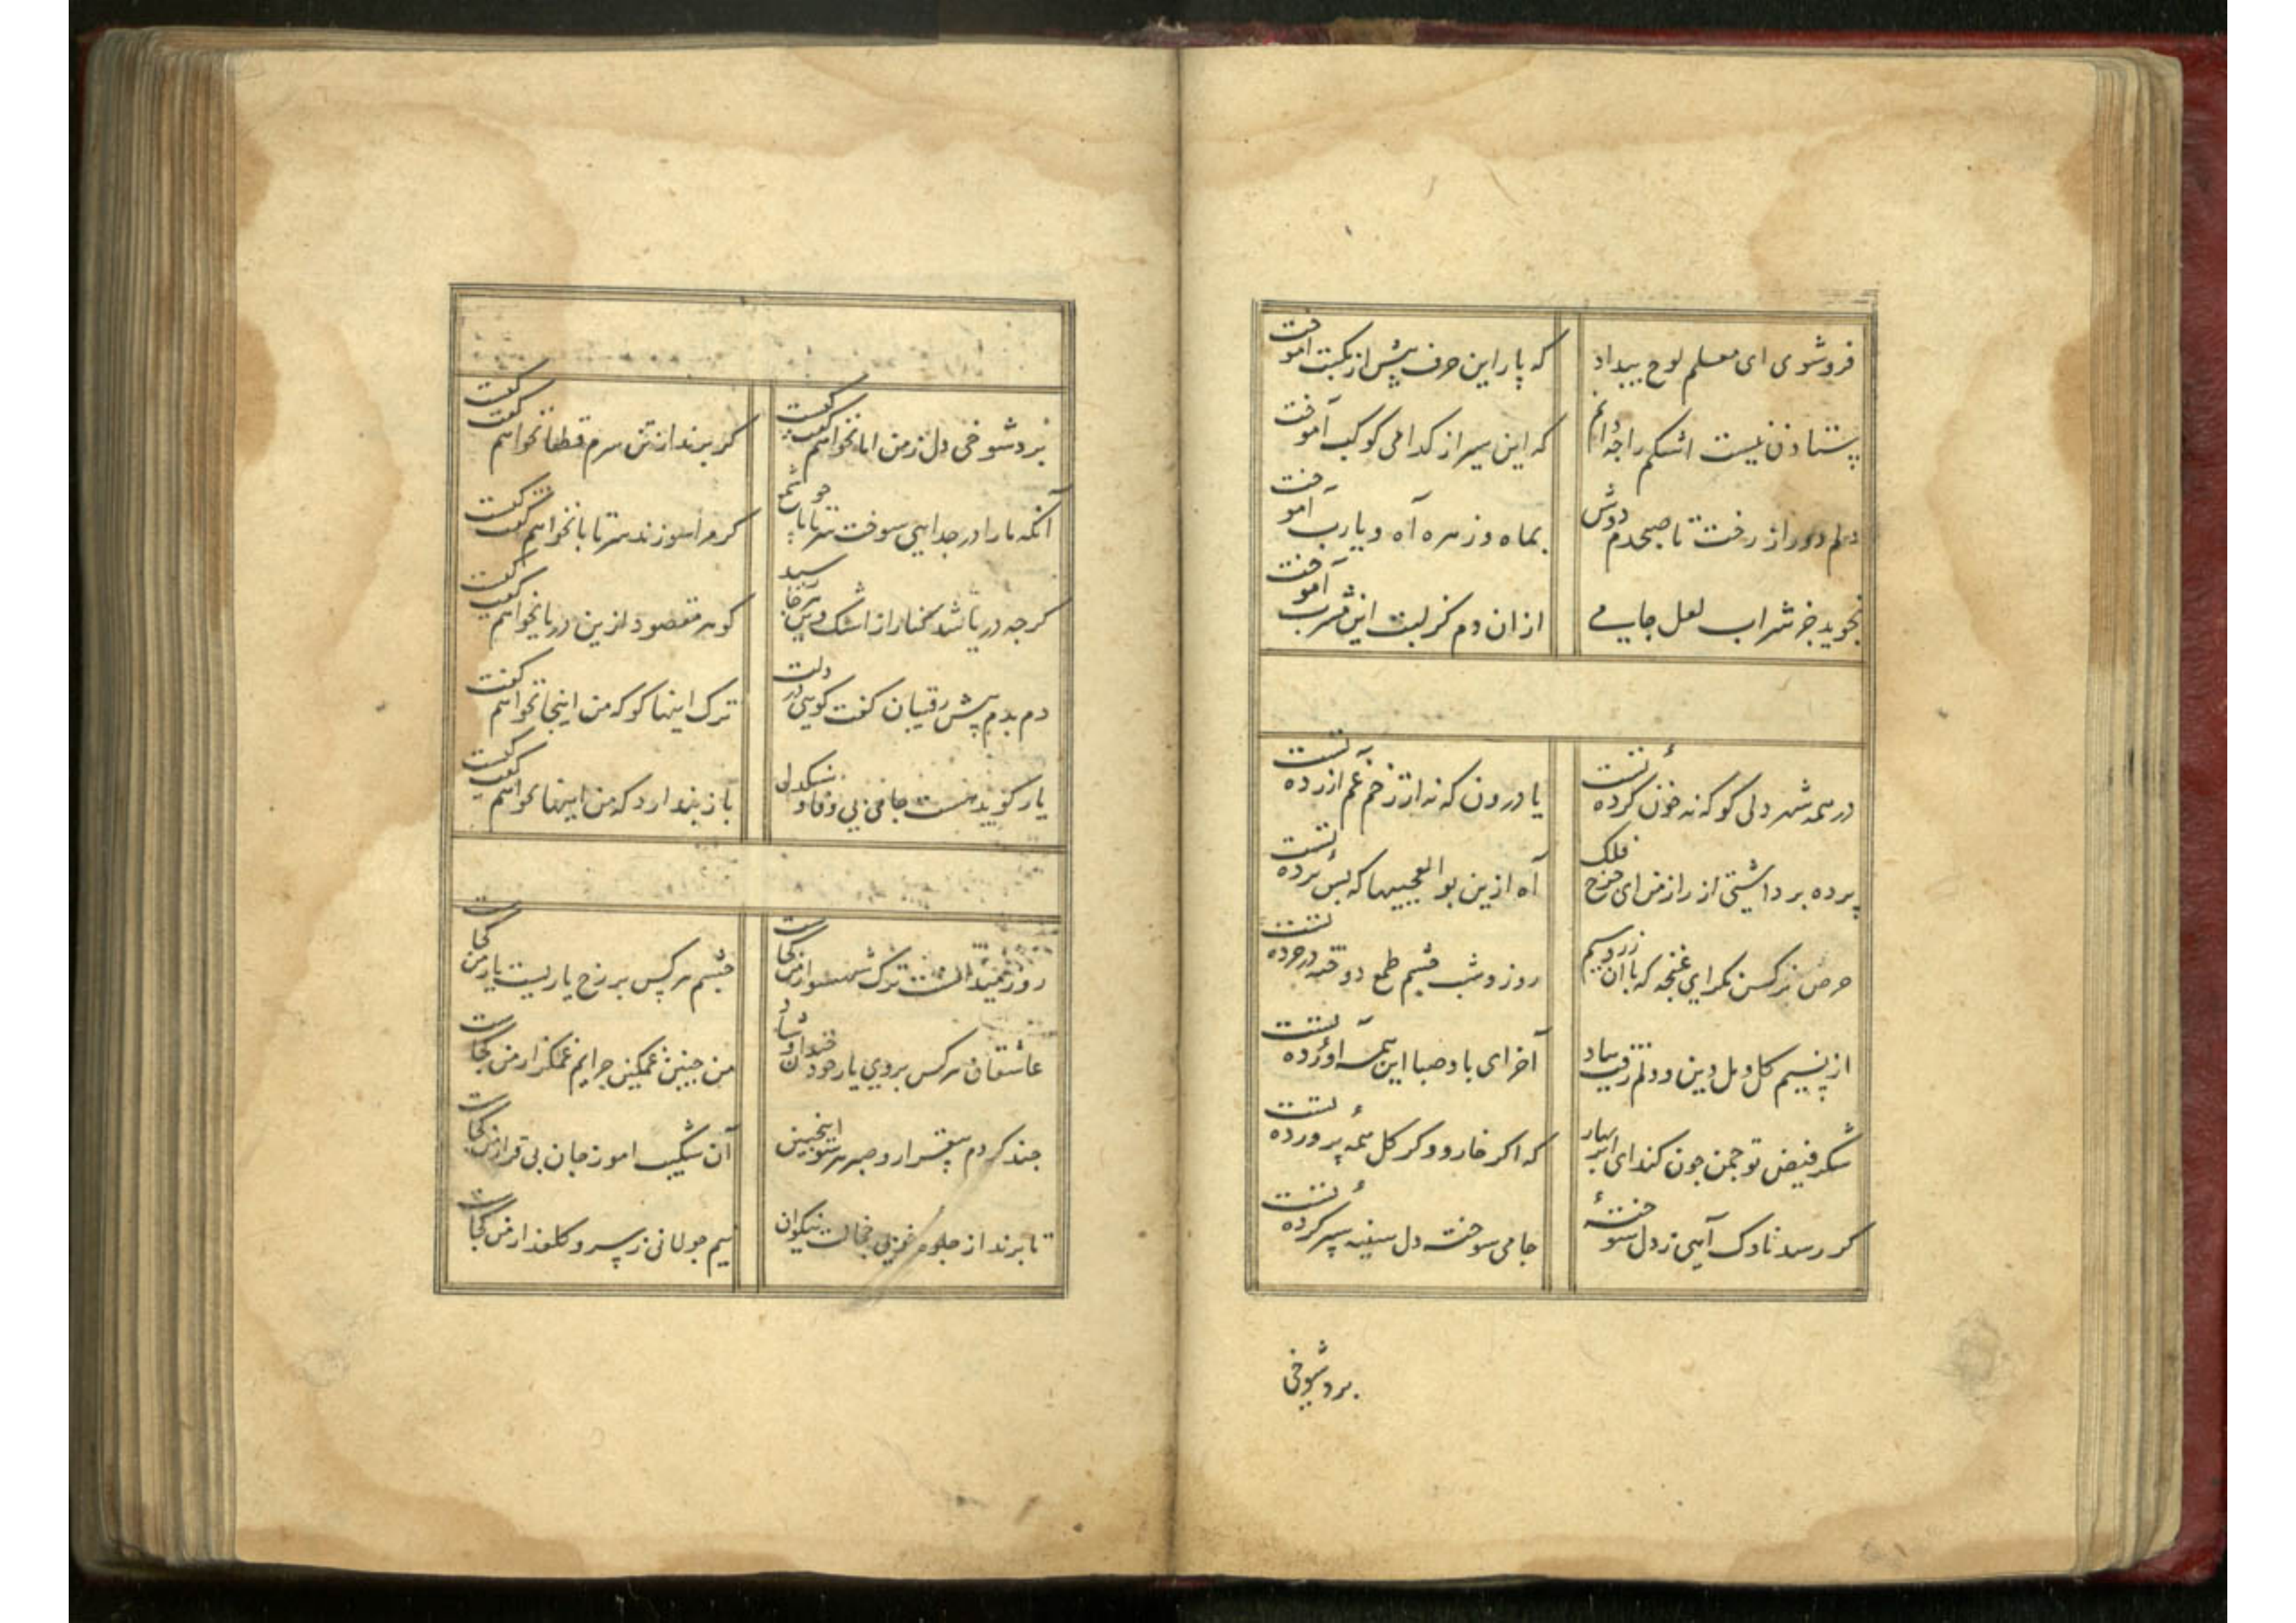 فروشوی ای معلم لوح بیداد
که یار این حرف پیش از مکتب آموخت
ستادن نیست اشکم را چه دانم
که این سیر از کدامی کوکب آموخت
دلم دور از رخت تا صبحدم دوش
بماه و زهره آه و یارب آموخت
نجوید جز شراب لعل جامی
از ان دم کز لبت این مشرب آموخت
در همه شهر دلی کو که نه خون کرده تست
یا درون که نه از زخم غم ازرده تست
پرده برداشتی از راز من ای چرخ فلک
آه ازین بو العجبیها که پس پرده تست
حرص نرکس نکر ای غنچه که با آن زر و سیم
روز و شب چشم طمع دوخته در خرده تست
از نسیم کل و مل دین و دلم رفت بباد
آخر ای باد صبا این همه اورده تست
شکر فیض تو چمن چون کند ای ابر بهار
که اکر خار و وکر کل همه پرورده تست
کر رسد ناوک آهی ز دل سوخته
جامی سوخته دل سینه سپر کرده تست
برد شوخی
برد شوخی دل ز من اما نخواهم گفت کیست
کر برند از تن سرم قطعا نخواهم گفت کیست
آنکه ما را در جدایی سوخت سر تا پا چو شمع
کر مرا سوزند سر تا پا نخواهم گفت کیست
کرچه دریا شد کنار از اشک و پرسید
کوهر مقصود ازین دریا نخواهم گفت کیست
دم بدم پیش رقیبان کفت کویی در دلت
ترک اینها کو که من اینجا نخواهم گفت
یار کوید هست جامی بی وفا و سنکدل
باز پندارد که من اینها نخواهم گفت کیست
روز عید است ترک شهسوار من کجاست
چشم هر کس بر رخ یاریست یار من کجاست
عاشقان هر کس بروی یار خود خندان و شاد
من چنین غمکین چرایم غمکزار من کجاست
چند کردم بیقرار و صبر هر سو اینچنین
آن شکیب اموز جان بی قرار من کجاست
تا برند از جلوه خوبی خجالت نیکوان
نیم جولانی ز سرو کلعذار من کجاست